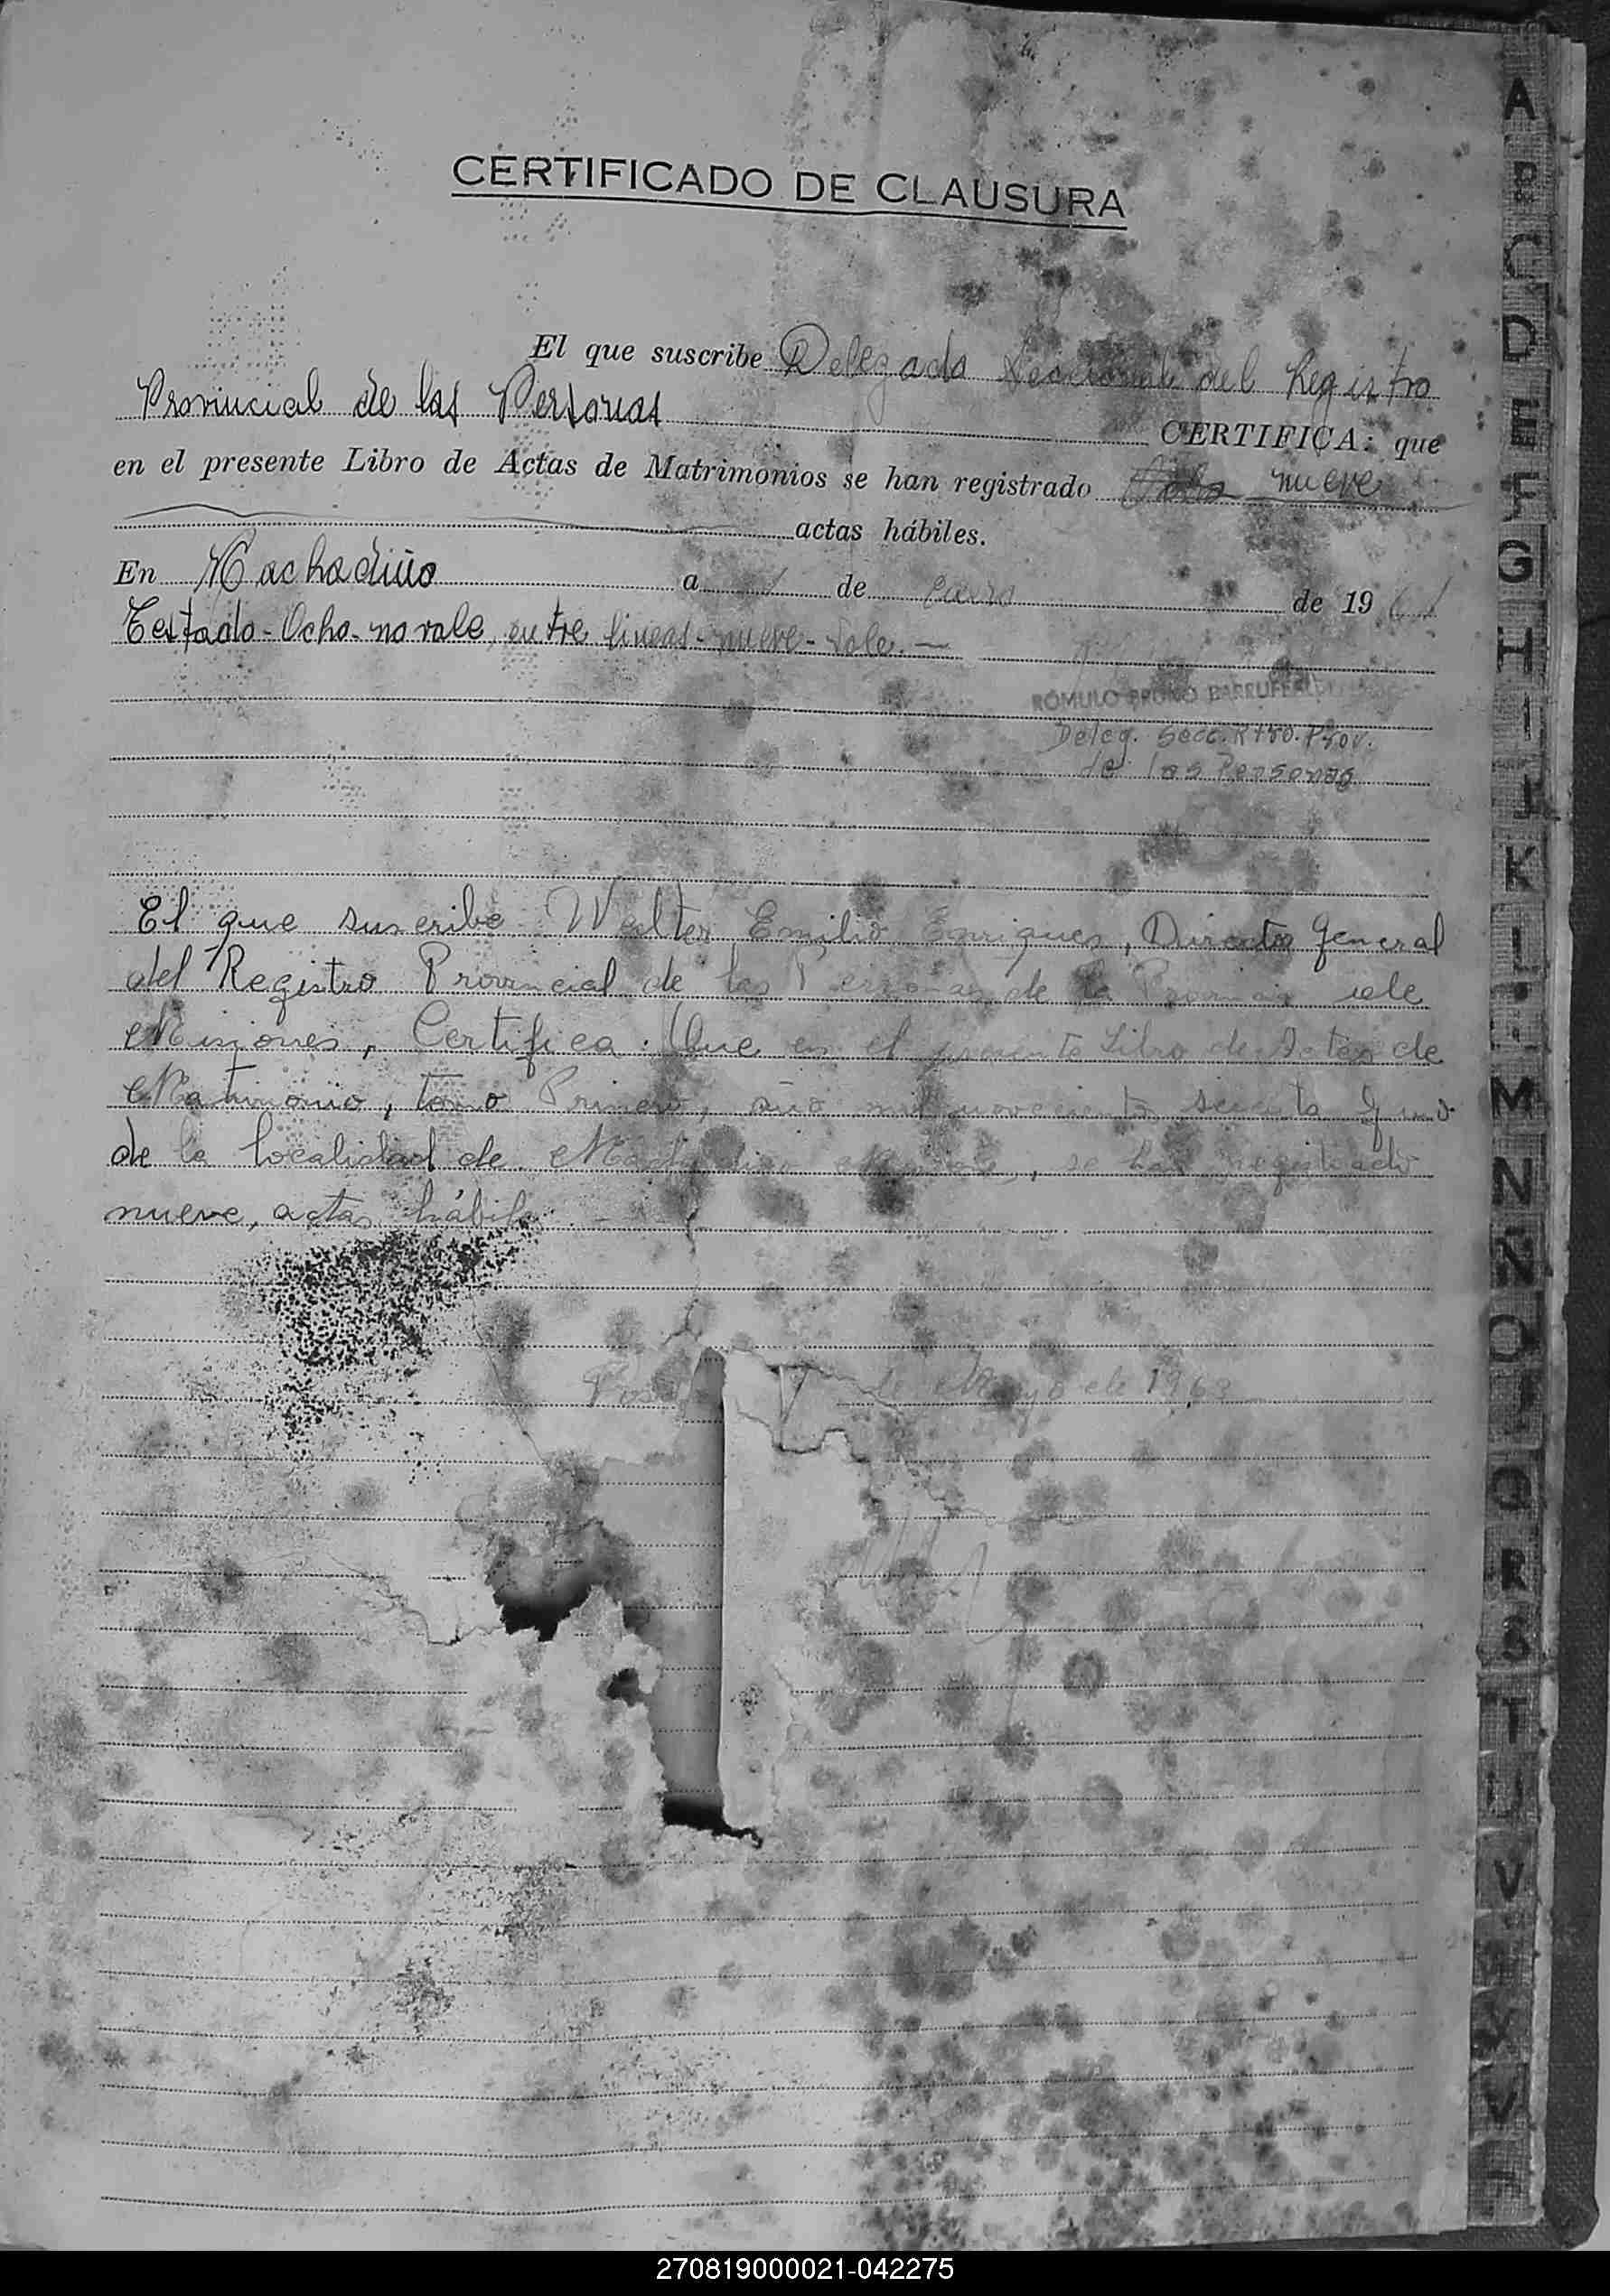 CERTIFICADO DE CLAUSURA
El que suscribe Delegado Seccional del Registro
Provincial de las Personas CERTIFICA: que
en el presente Libro de Actas de Matrimonios se han registrado Ocho nueve
actas hábiles.
En Machadiño a de de 19
Testado-Ocho-no vale, entre lineas-nueve-Vale.—
ROMULO BRUNO
Deleg. Secc. Rtro. Prov.
de las Personas
El que suscribe Walter Emilio Enriques, Director General
del Registro Provincial de las Personas de la Provincia de
Misiones, Certifica: Que en el presente Libro de Actas de
Matrimonio, tomo Primero, año mil novecientos sesenta y uno
de la localidad de se han registrado
nueve, actas hábiles.-
de Mayo de 1963
A
B
C
D
E
F
G
H
I
J
K
L
M
N
Ñ
O
P
Q
R
S
T
U
V
270819000021-042275